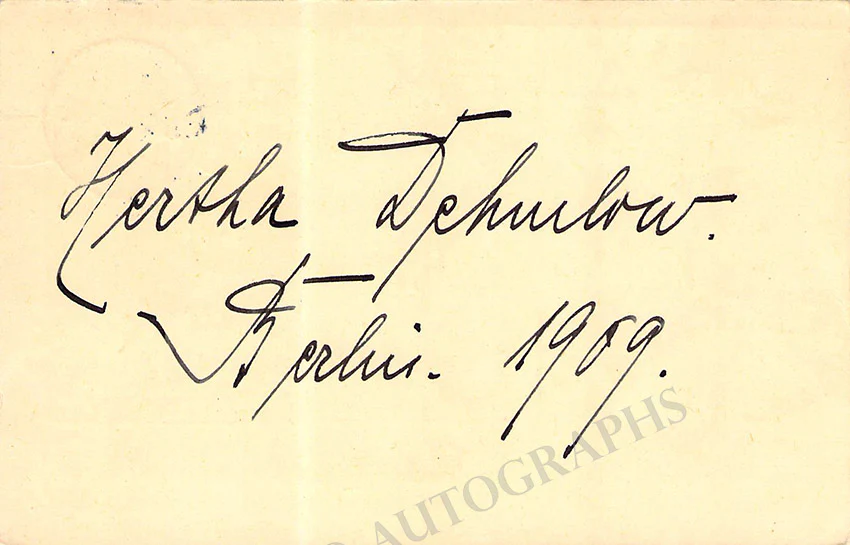 Hertha Dehmlow.
Berlin. 1909.
AUTOGRAPHS